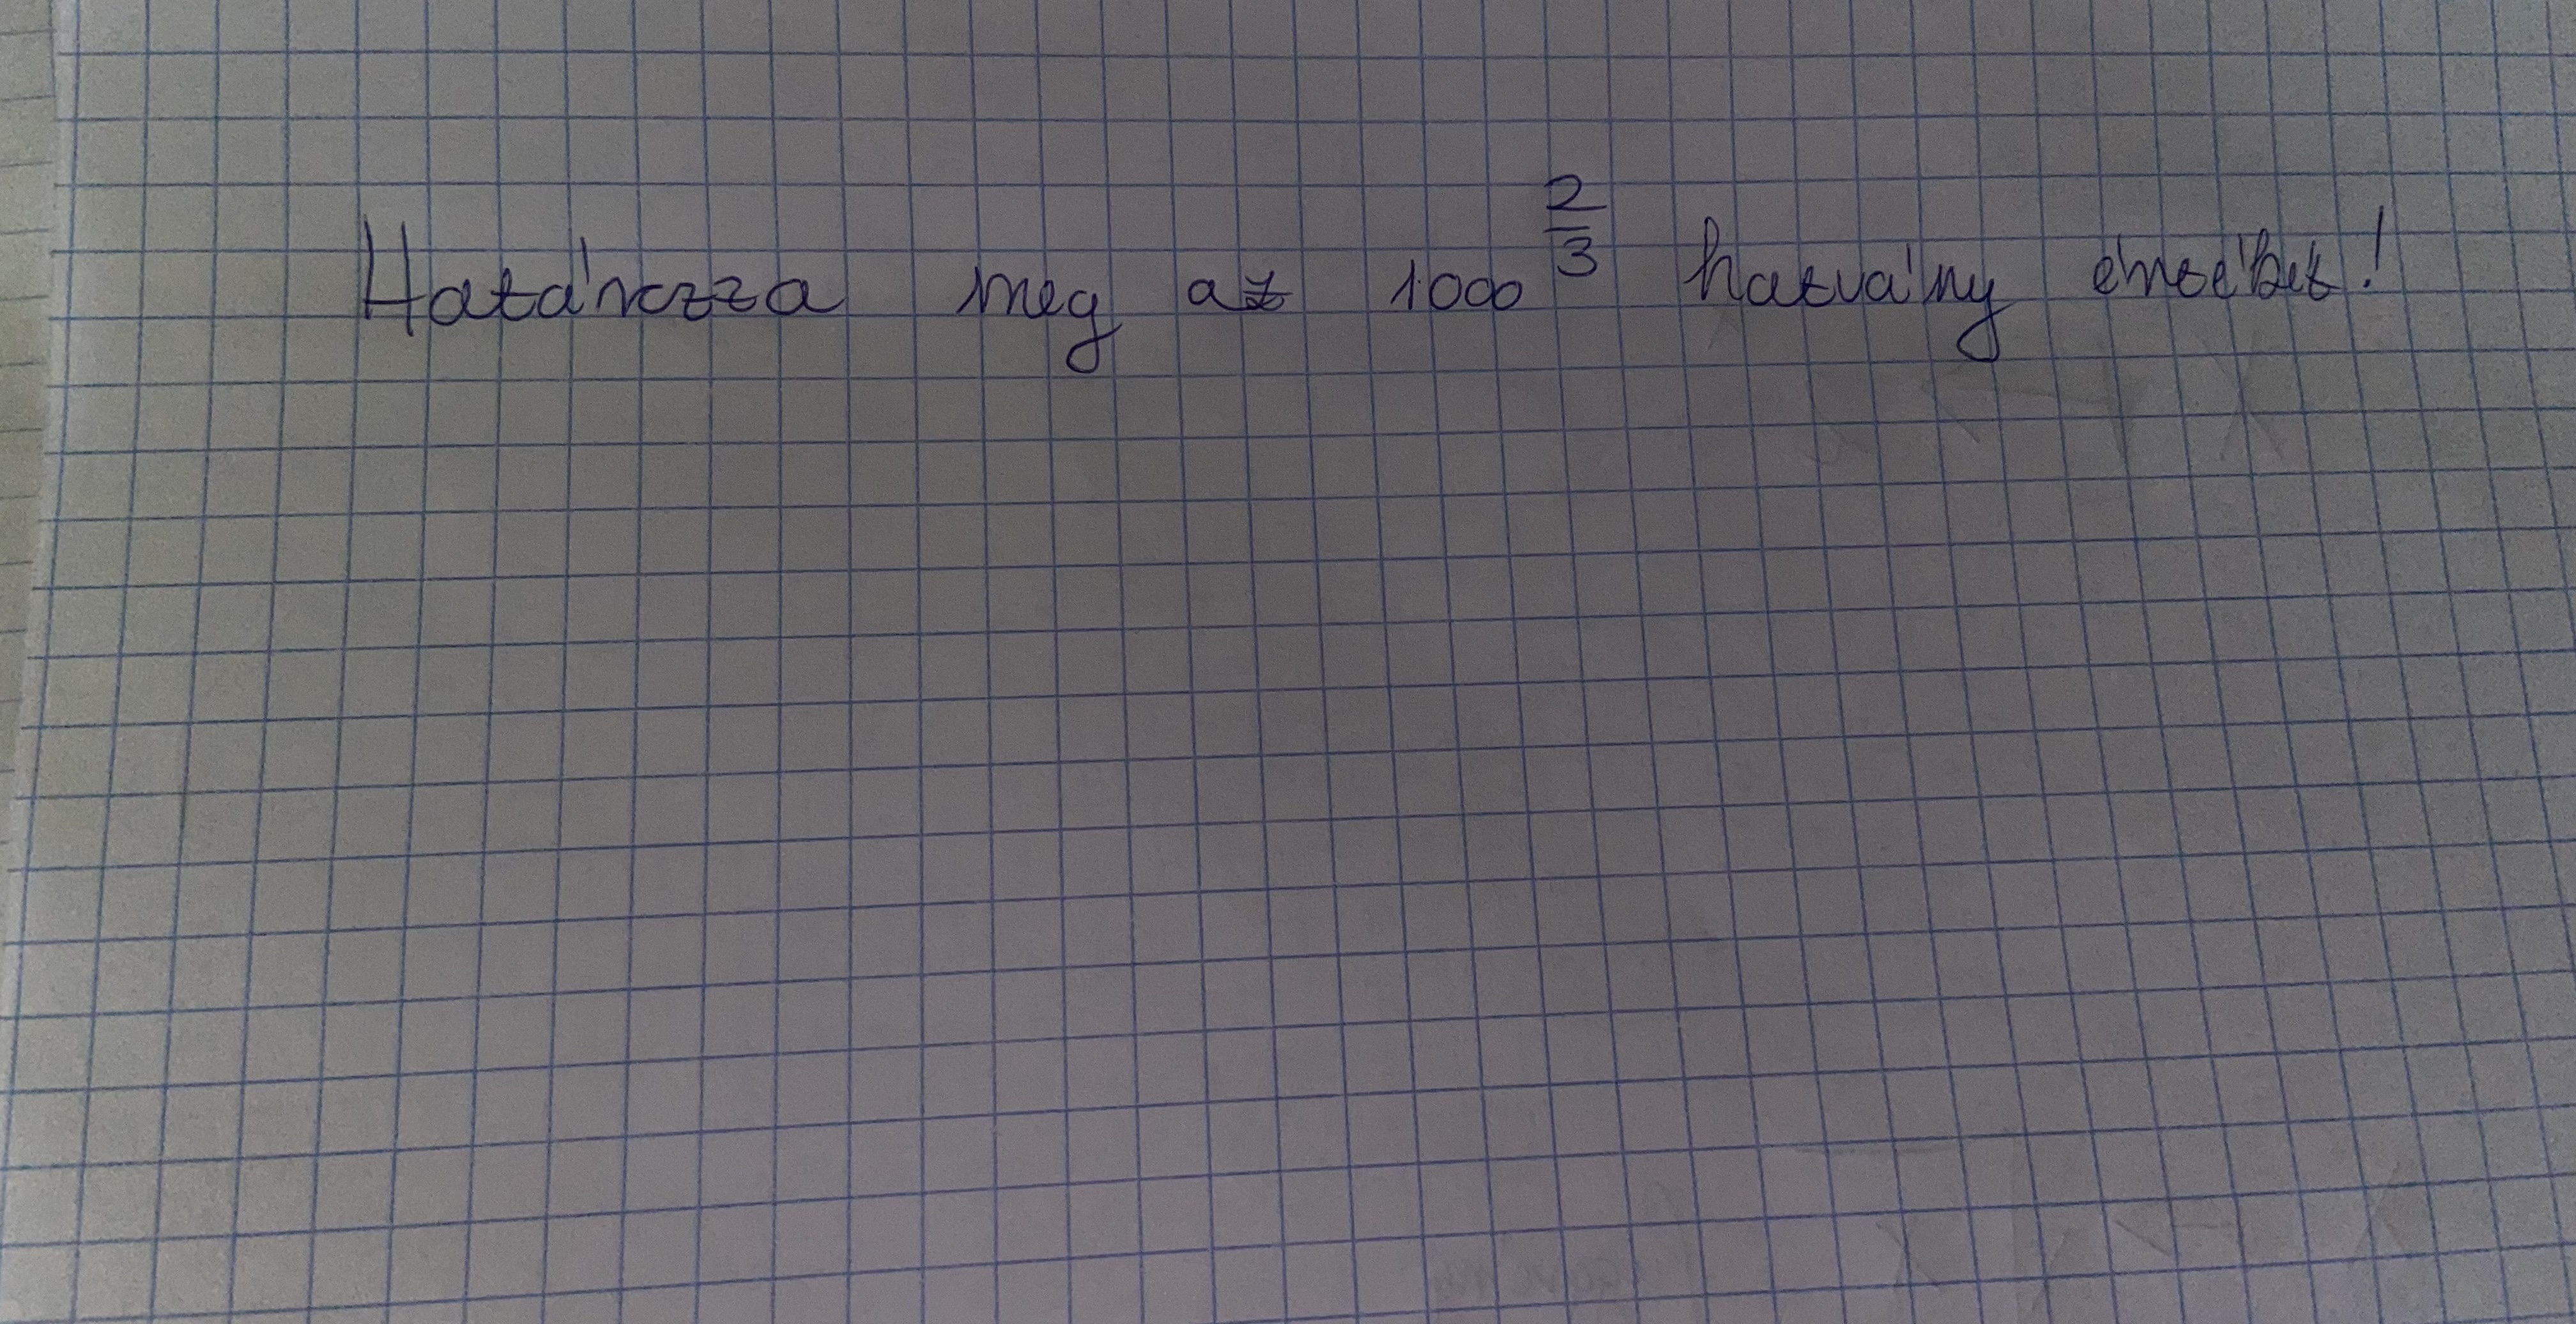 Határozza meg az 1000^(2/3) hatvány értékét!